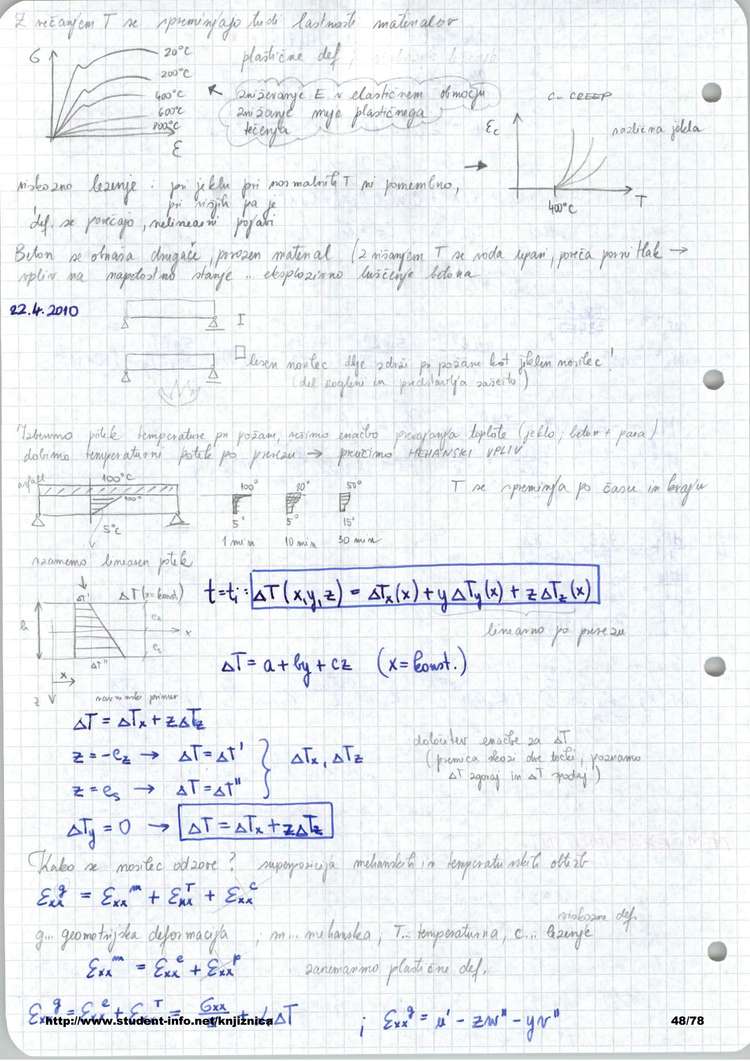 Z večanjem T se spreminjajo tudi lastnosti materialov
σ
20°C
200°C
400°C
600°C
800°C
ε
plastične def
zniževanje E v elastičnem območju
znižanje meje plastičnega
tečenja
C - CREEP
εc
različna jekla
400°C
T
viskozno lezenje : pri jeklu pri normalnih T ni pomembno,
pri višjih pa je
def. se povečajo, nelinearni pojavi
Beton se obnaša drugače, porozen material (z višanjem T se voda upari, poveča porni tlak →
vpliv na napetostno stanje .. eksplozivno luščenje betona
22.4.2010
I
lesen nosilec dlje zdrži po požaru kot jeklen nosilec!
(del zogleni in predstavlja zaščito)
Izberemo potek temperature pri požaru, rešimo enačbo prevajanja toplote (jeklo, beton + para)
dobimo temperaturni potek po prerezu → preučimo MEHANSKI VPLIV
asfalt
100°C
100°C
5°C
100° 80° 50°
5° 5° 15°
1 min 10 min 30 min
T se spreminja po času in kraju
vzamemo linearen potek
ΔT'
ΔT (x=konst)
x
ΔT''
x
z
t=tᵢ: ΔT(x,y,z) = ΔTx(x) + yΔTy(x) + zΔTz(x)
linearno po prerezu
ΔT = a+by+cz (x=konst.)
ravninski primer
ΔT = ΔTx + zΔTz
z = -ez → ΔT = ΔT'
z = es → ΔT = ΔT''
ΔTx, ΔTz
določitev enačbe za ΔT
(premica skozi dve točki, poznamo
ΔT zgoraj in ΔT spodaj)
ΔTy = 0 → ΔT = ΔTx + zΔTz
Kako se nosilec odzove? superpozicija mehanskih in temperaturnih obtežb
εxx^g = εxx^m + εxx^T + εxx^c
viskozne def.
g... geometrijska deformacija, m... mehanska, T... temperaturna, c... lezenje
εxx^m = εxx^e + εxx^p zanemarimo plastične def.
εxx^g = εxx^e + εxx^T = σxx + ΔT ; εxx^g = u' - zw'' - yv''
http://www.student-info.net/knjižnica
48/78